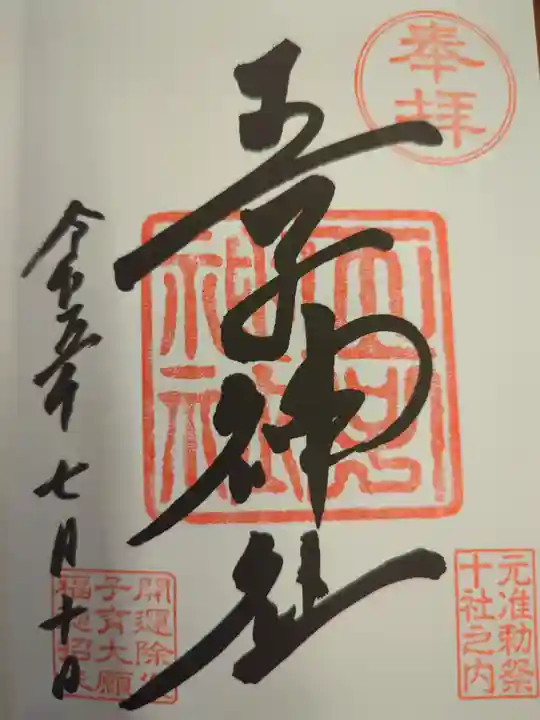 奉拝
王子神社
元准勅祭
十社之内
令和五年七月十日
開運除
子育大願
福徳招来